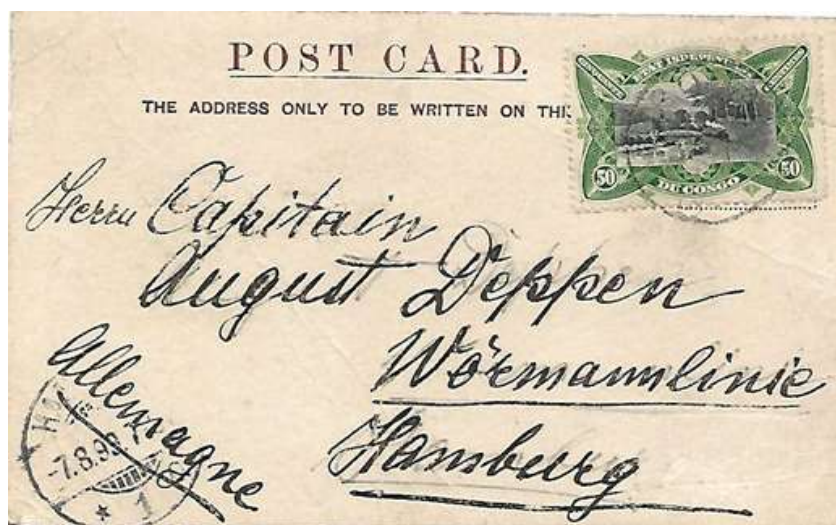 POST CARD.
THE ADDRESS ONLY TO BE WRITTEN ON THI
ETAT INDEPENDANT
50 50
DU CONGO
Herrn Capitain
August Deppen
Wörmannlinie
Hamburg
Allemagne
7.8.98
* 1